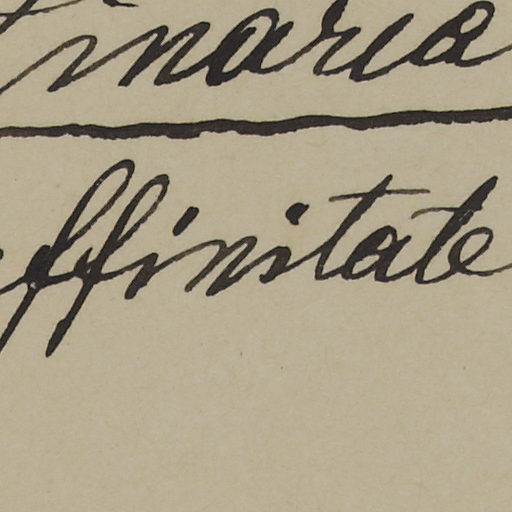 inaria
ffinitate